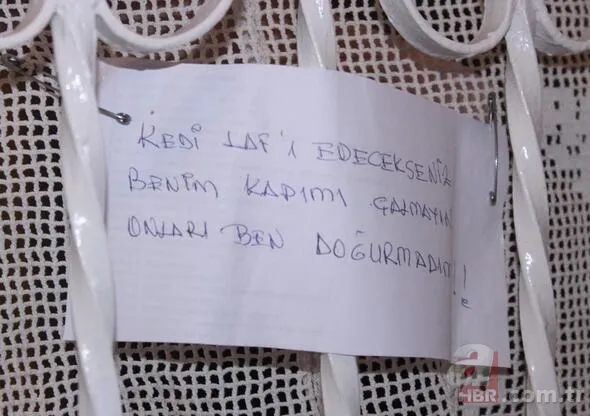 KEDİ LAF'I EDECEKSENİZ
BENİM KAPIMI ÇALMAYIN
ONLARI BEN DOĞURMADIM!!
a
HBR.com.tr